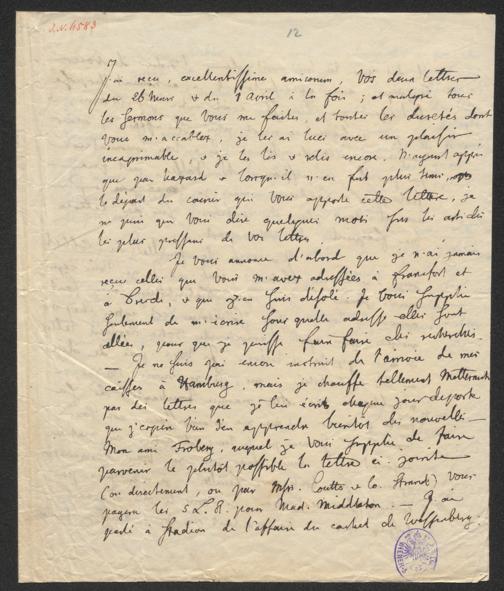 J.N. 4583
12
J'ai reçu, excellentissime amicorum, vos deux lettres
du 26 Mars & du 1 Avril à la fois; et malgré tous
les sermons que vous me faites, et toutes les duretés dont
vous m'accablez, je les ai lues avec un plaisir
inexprimable, & je les lis & relis encore. N'ayant appris
que par hazard & lorsqu'il n'en fut plus tems,
le départ du courier qui vous apporte cette lettre, je
ne puis que vous dire quelques mots sur les articles
les plus pressans de vos lettres.
Je vous annonce d'abord que je n'ai jamais
reçu celles que vous m'avez adressées à Francfort et
à & que j'en suis désolé. Je vous supplie
seulement de m'écrire sous quelle adresse elles sont
allées, pour que je puisse faire faire des recherches.
— Je ne suis pas encore instruit de l'arrivée de mes
caisses à Hamburg, mais je chauffe tellement
par des lettres que je lui écris chaque jour de poste
que j'espère bien d'en apprendre bientôt des nouvelles —
Mon ami Froberg, auquel je vous supplie de faire
parvenir le plutôt possible la lettre ci-jointe
(ou directement, ou par Mssrs. Coutts & Co. Strand) vous
payera les 5 L. St. pour Mad. Middleton. — J'ai
parlé à Stadion de l'affaire du cachet de Wessenberg.